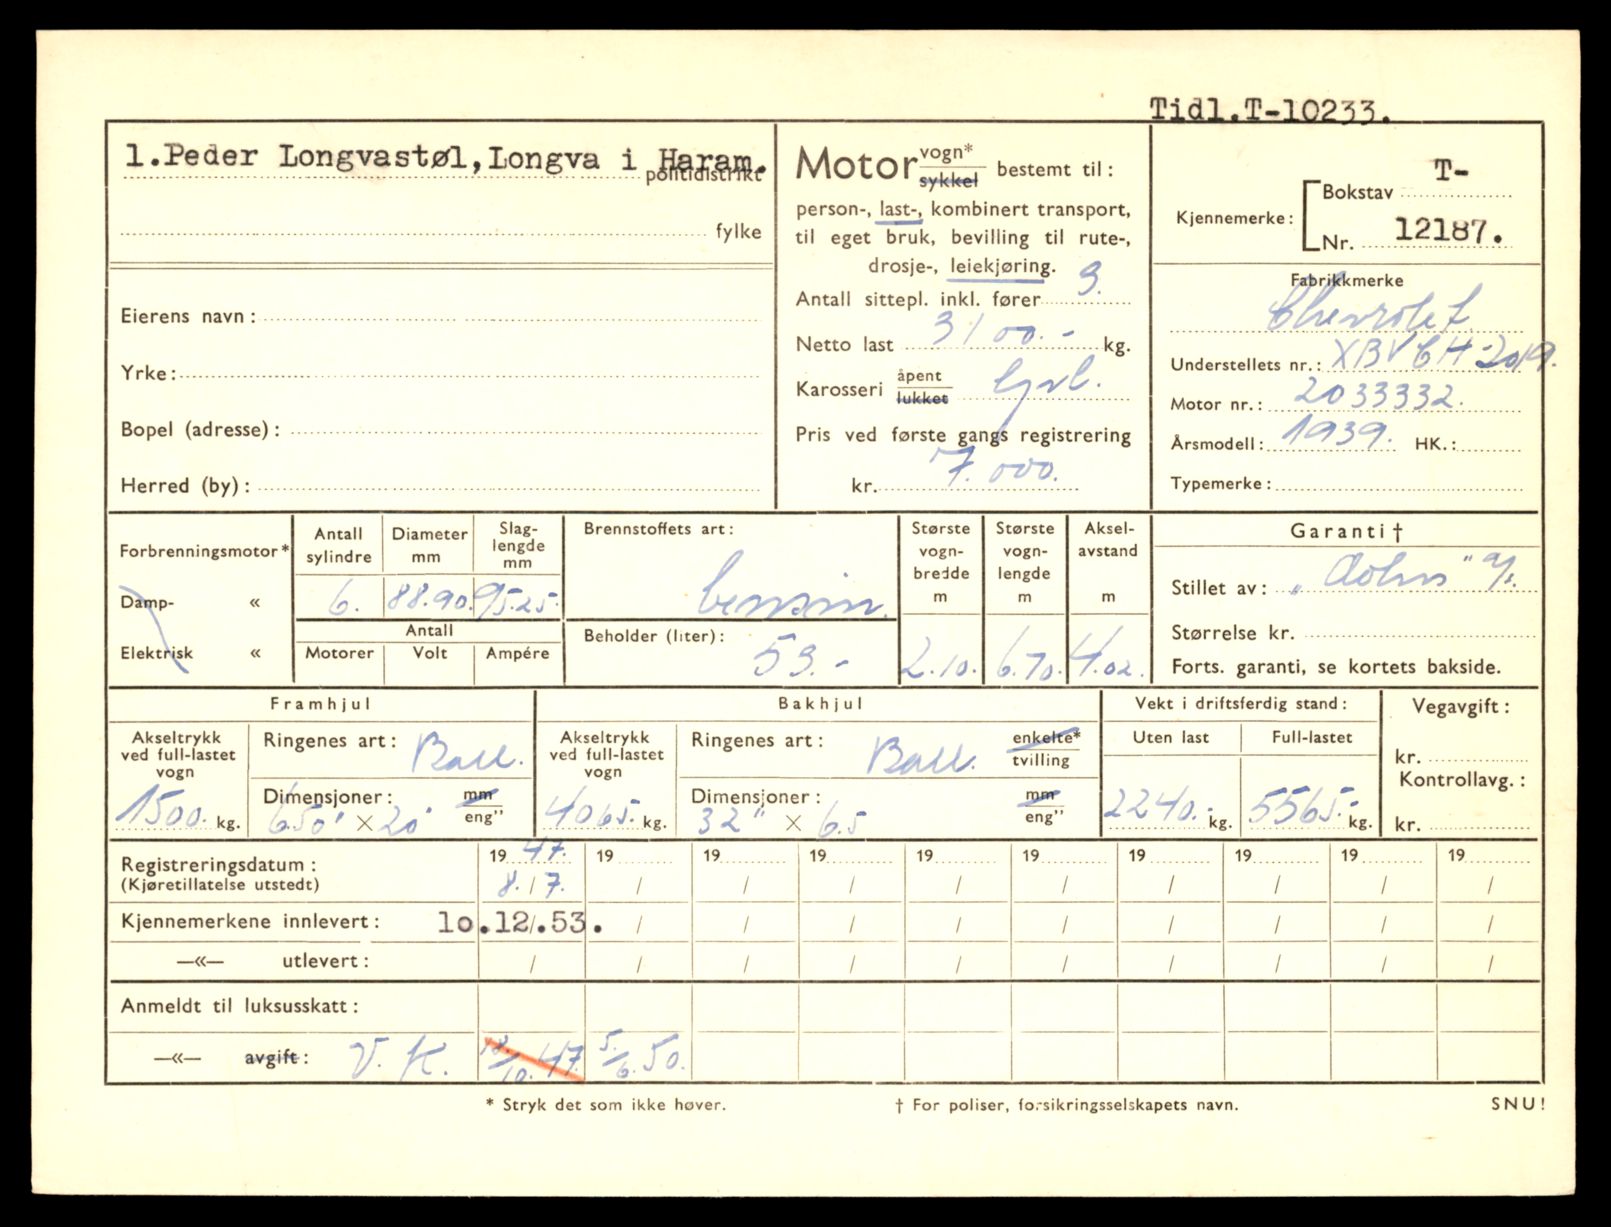 Tidl.T-10233.
1.Peder Longvastøl,Longva i Haram.
politidistrikt
fylke
Eierens navn:
Yrke:
Bopel (adresse):
Herred (by):
Motor vogn* sykkel bestemt til:
person-, last-, kombinert transport,
til eget bruk, bevilling til rute-,
drosje-, leiekjøring.
Antall sittepl. inkl. fører 3.
Netto last 3100.- kg.
Karosseri åpent lukket
Pris ved første gangs registrering
kr. 7.000.
Kjennemerke:
Bokstav T-
Nr. 12187.
Fabrikkmerke
Chevrolet
Understellets nr.: XBVCH-2019.
Motor nr.: 2033332.
Årsmodell: 1939. HK.:
Typemerke:
Forbrenningsmotor*
Damp- «
Elektrisk «
Antall sylindre
Diameter mm
Slag-lengde mm
6. 88.90. 95.25.
Antall
Motorer Volt Ampére
Brennstoffets art:
bensin.
Beholder (liter):
53.-
Største vogn-bredde m
Største vogn-lengde m
Aksel-avstand m
2.10. 6.70. 4.02.
Garanti †
Stillet av:
Størrelse kr.
Forts. garanti, se kortets bakside.
Framhjul
Akseltrykk ved full-lastet vogn
1500. kg.
Ringenes art: Ball.
Dimensjoner: mm eng"
6.50" × 20"
Bakhjul
Akseltrykk ved full-lastet vogn
4065.- kg.
Ringenes art: Ball. enkelte* tvilling
Dimensjoner: mm eng"
32" × 6.5
Vekt i driftsferdig stand:
Uten last Full-lastet
2240.- kg. 5565.- kg.
Vegavgift:
kr.
Kontrollavg.:
kr.
Registreringsdatum: 19 47. 19 19 19 19 19 19 19 19 19
(Kjøretillatelse utstedt) 8./7. / / / / / / / / /
Kjennemerkene innlevert: 10.12/.53. / / / / / / / / /
—«— utlevert: / / / / / / / / / /
Anmeldt til luksusskatt:
—«— avgift: V. K. 18/10.47. 5./6.50.
* Stryk det som ikke høver.
† For poliser, forsikringsselskapets navn.
SNU!